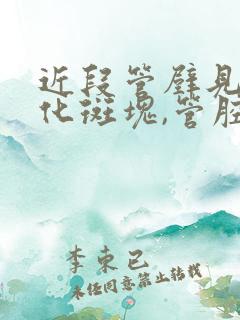 近段管壁见
化斑块,管腔
李束已
未经同意禁止转载